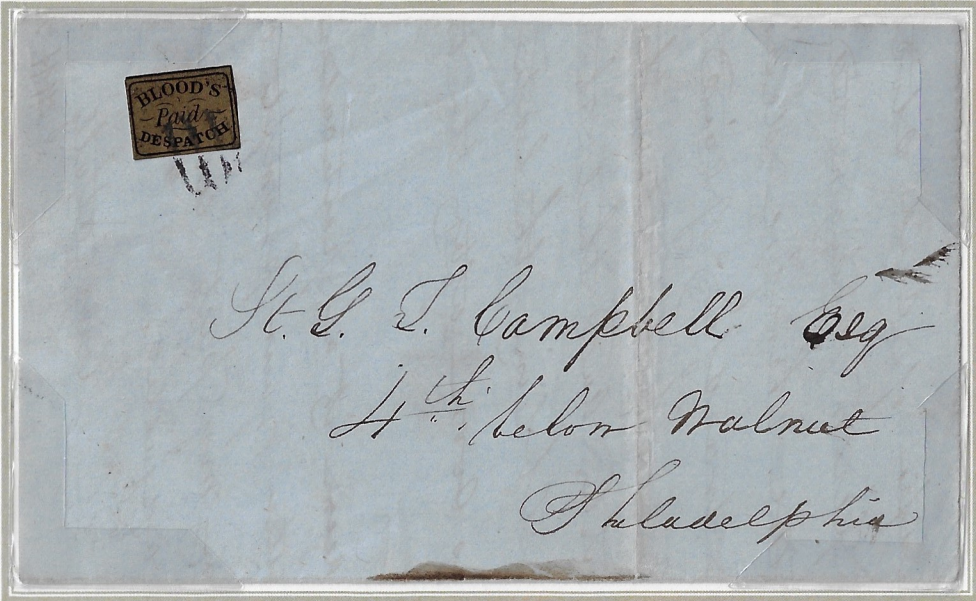 BLOOD'S
Paid
DESPATCH
St. G. T. Campbell Esq
4th. below Walnut
Philadelphia